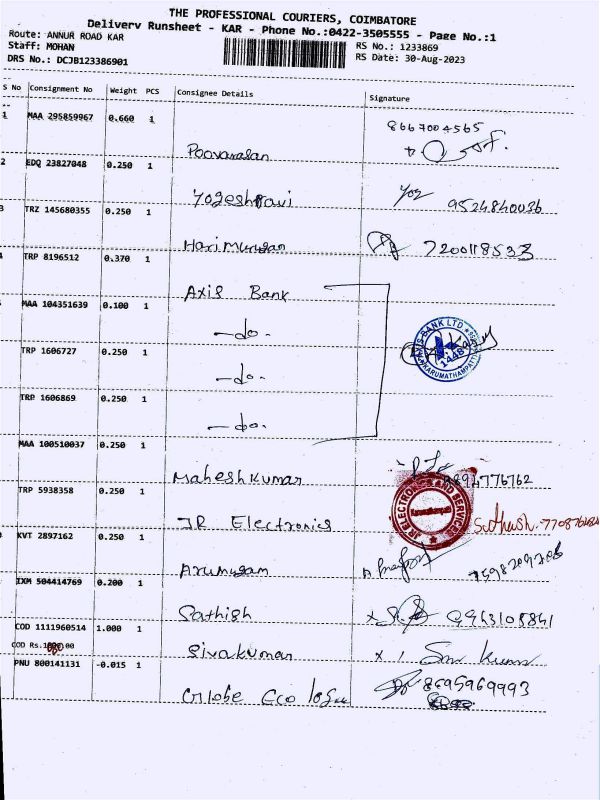 THE PROFESSIONAL COURIERS, COIMBATORE
Delivery Runsheet - KAR - Phone No.:0422-3505555 - Page No.:1
Route: ANNUR ROAD KAR
Staff: MOHAN
DRS No.: DCJB123386901
RS No.: 1233869
RS Date: 30-Aug-2023
S No Consignment No Weight PCS Consignee Details Signature
1 MAA 295859967 0.660 1
8667004565
Poovarasan
2 EDQ 23827048 0.250 1
Yogesh
9524840036
3 TRZ 145680355 0.250 1
Hari Murugan 7200118533
TRP 8196512 0.370 1
Axis Bank
MAA 104351639 0.100 1
-do-
AXIS BANK LTD
1448
KARUMATHAMPATTI
TRP 1606727 0.250 1
-do-
TRP 1606869 0.250 1
-do-
MAA 100510037 0.250 1
Mahesh Kumar
TRP 5938358 0.250 1
JR Electronics
JR ELECTRONICS AND SERVICES
KVT 2897162 0.250 1
Arumugam
IXM 504414769 0.200 1
Sathish
COD 1111960514 1.000 1
COD Rs.
Sivakumar
PNU 800141131 -0.015 1
Globe Eco
8695969993